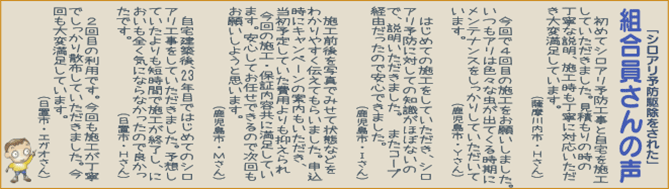 「シロアリ予防駆除をされた」
組合員さんの声
初めてシロアリ予防工事と自宅を施工
していただきました。見積もりの時の
丁寧な説明、施工時も丁寧に対応いただ
き大変満足しています。
（薩摩川内市・Hさん）
今回で4回目の施工をお願いしました。
いつもアリは色々な虫が出てくる時期に
メンテナンスをしっかりしていただいて
います。
（鹿児島市・Yさん）
はじめての施工をしていただき、シロ
アリ予防に対しての知識がほぼないの
で、説明いただきました。またコープ
経由だったので安心できました。
（鹿児島市・Iさん）
施工前後を写真でみせて状態などを
わかりやすく伝えてもらいました。申込
時にキャンペーンの案内もいただき、
当初予定していた費用よりも抑えられ
ました。
今回の施工・保証内容共に満足してい
ます。安心してお任せできるので次回も
お願いしようと思います。
（鹿児島市・Mさん）
自宅建築後23年目ではじめてのシロ
アリ工事をしていただきました。予想し
ていたよりも短時間で施工が終了し、に
おいも全く気にならなかったので良かっ
たです。
（日置市・Hさん）
2回目の利用です。今回も施工が丁寧
でしっかり散布していただきました。今
回も大変満足しています。
（日置市・エガオさん）